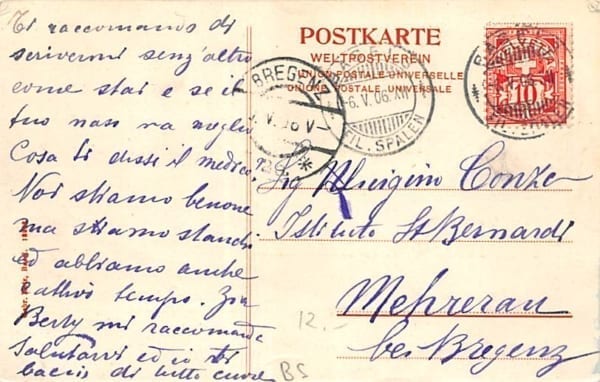 Ti raccomando di
scrivermi senz'altro
come stai e se il
tuo naso va meglio
Cosa ti dissi il medico
Noi stiamo benone
ma stiamo stanchi
ed abbiamo anche
cattivo tempo. Zia
Berty mi raccomanda
salutarvi ed io ti
baccio di tutto cuore
POSTKARTE
WELTPOSTVEREIN
UNION POSTALE UNIVERSELLE
UNIONE POSTALE UNIVERSALE
BREGENZ
V 06 V
-6.V.06.XII
FIL. SPALEN
10
Sig Luigino Conza
Istituto St Bernardi
Mehrerau
bei Bregenz
12.-
BS